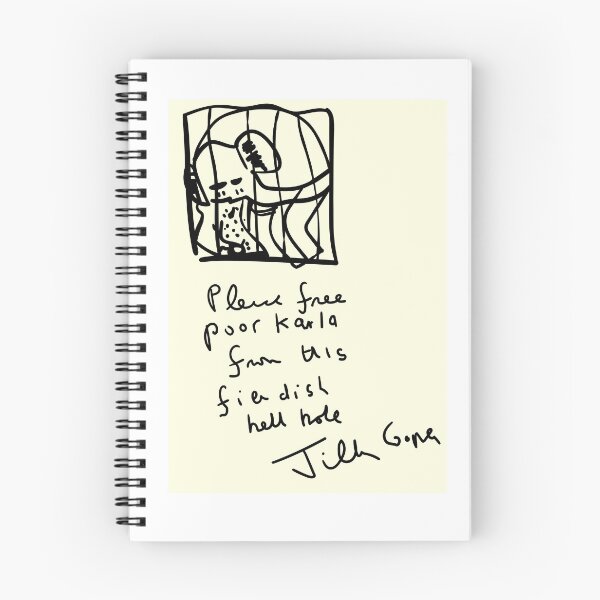 Please free
poor Karla
from this
fiendish
hell hole
Jilly Goolden